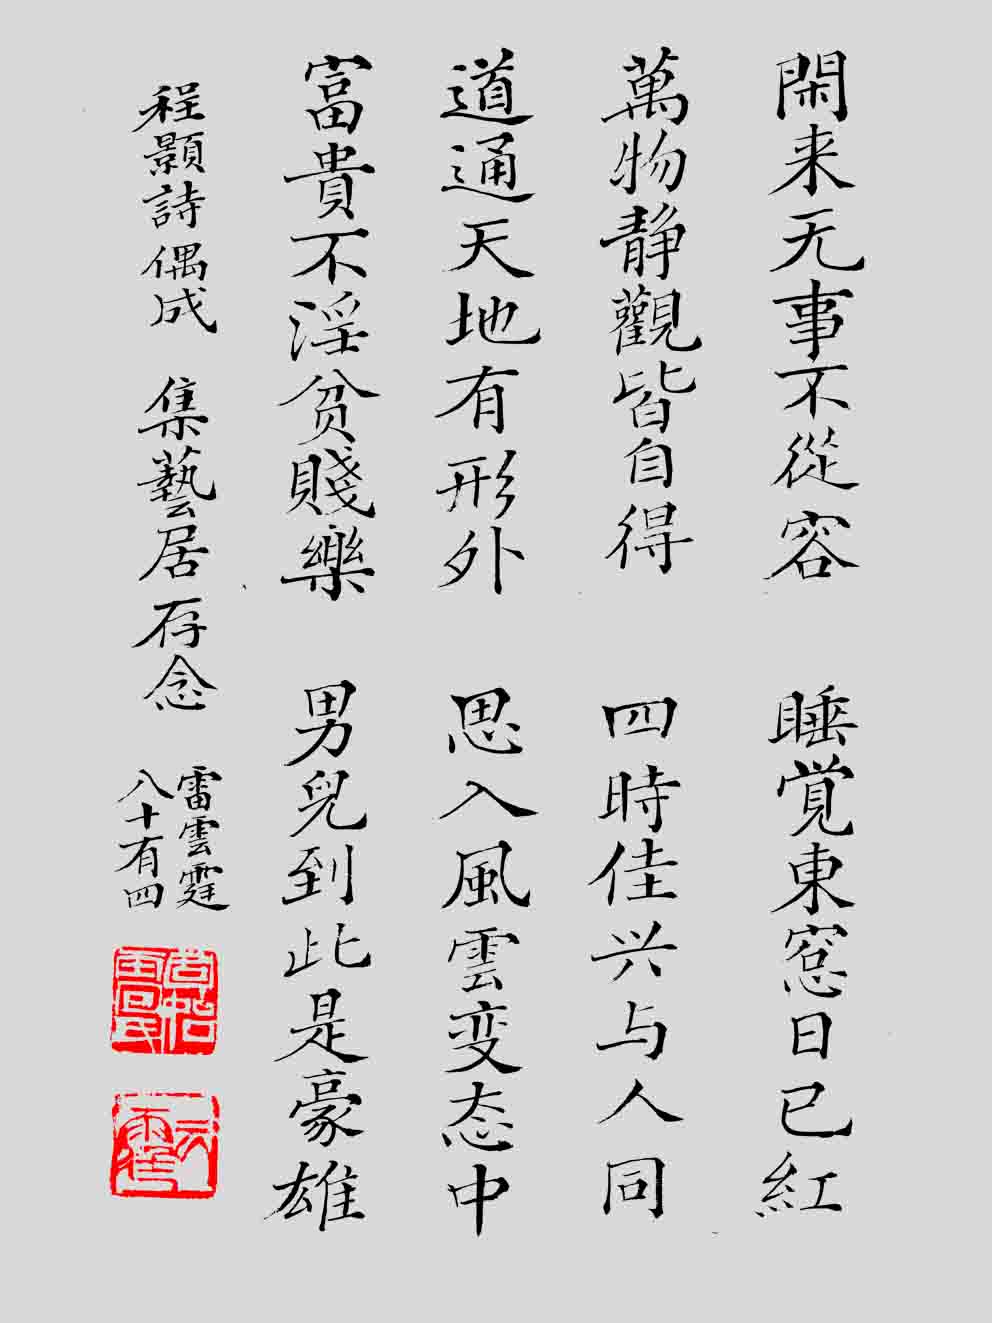 閑来无事不從容 睡覚東窓日已紅
萬物静觀皆自得 四時佳兴与人同
道通天地有形外 思入風雲变态中
富貴不淫贫賤樂 男兒到此是豪雄
程顥詩偶成 集藝居存念
雷雲霆
八十有四